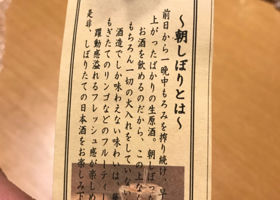 ～朝しぼりとは～
前日から一晩中もろみを搾り続け、
上がったばかりの生原酒。朝しぼった
お酒を飲めるのだから、この上な
もちろん一切の火入れをしていな
酒造でしか味わえない味わいは、
もぎたてのリンゴなどのフルーティー
躍動感溢れるフレッシュ感が楽しめ
是非、しぼりたての日本酒をお楽しみ下